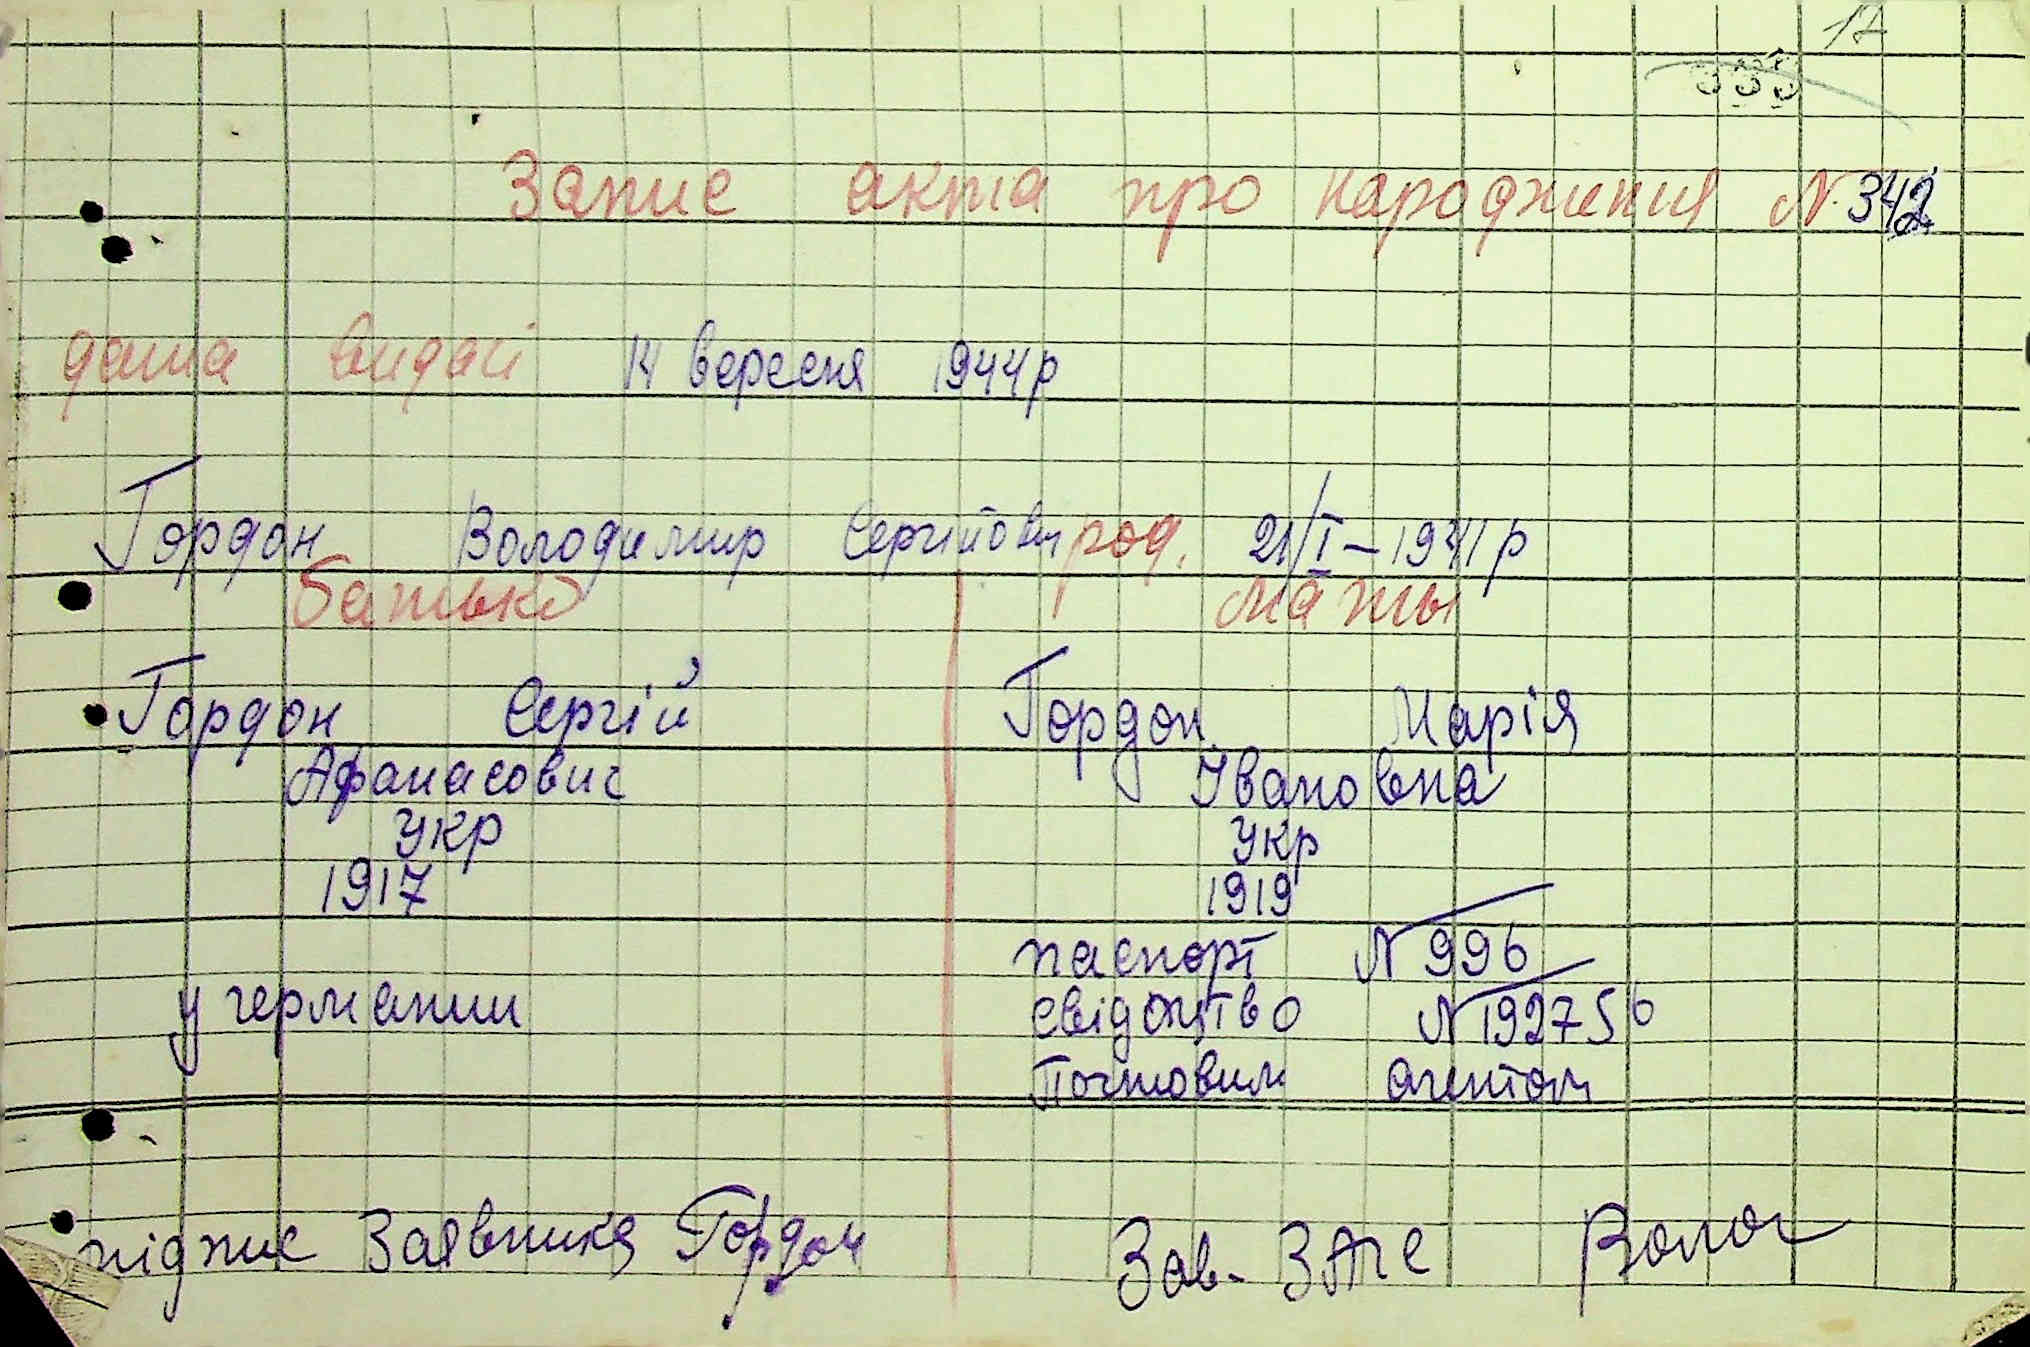 17
335
Запис акта про народження N 342
дата видачі 14 вересня 1944р
Гордон Володимир Сергійови род. 21/I – 1941р
батько маты
Гордон Сергій Гордон Марія
Афанасович Івановна
укр укр
1917 1919
паспорт N 996
у германии свідоцтво N 192756
Почтовим агентом
підпис Заявника Гордон Зав. ЗАГС